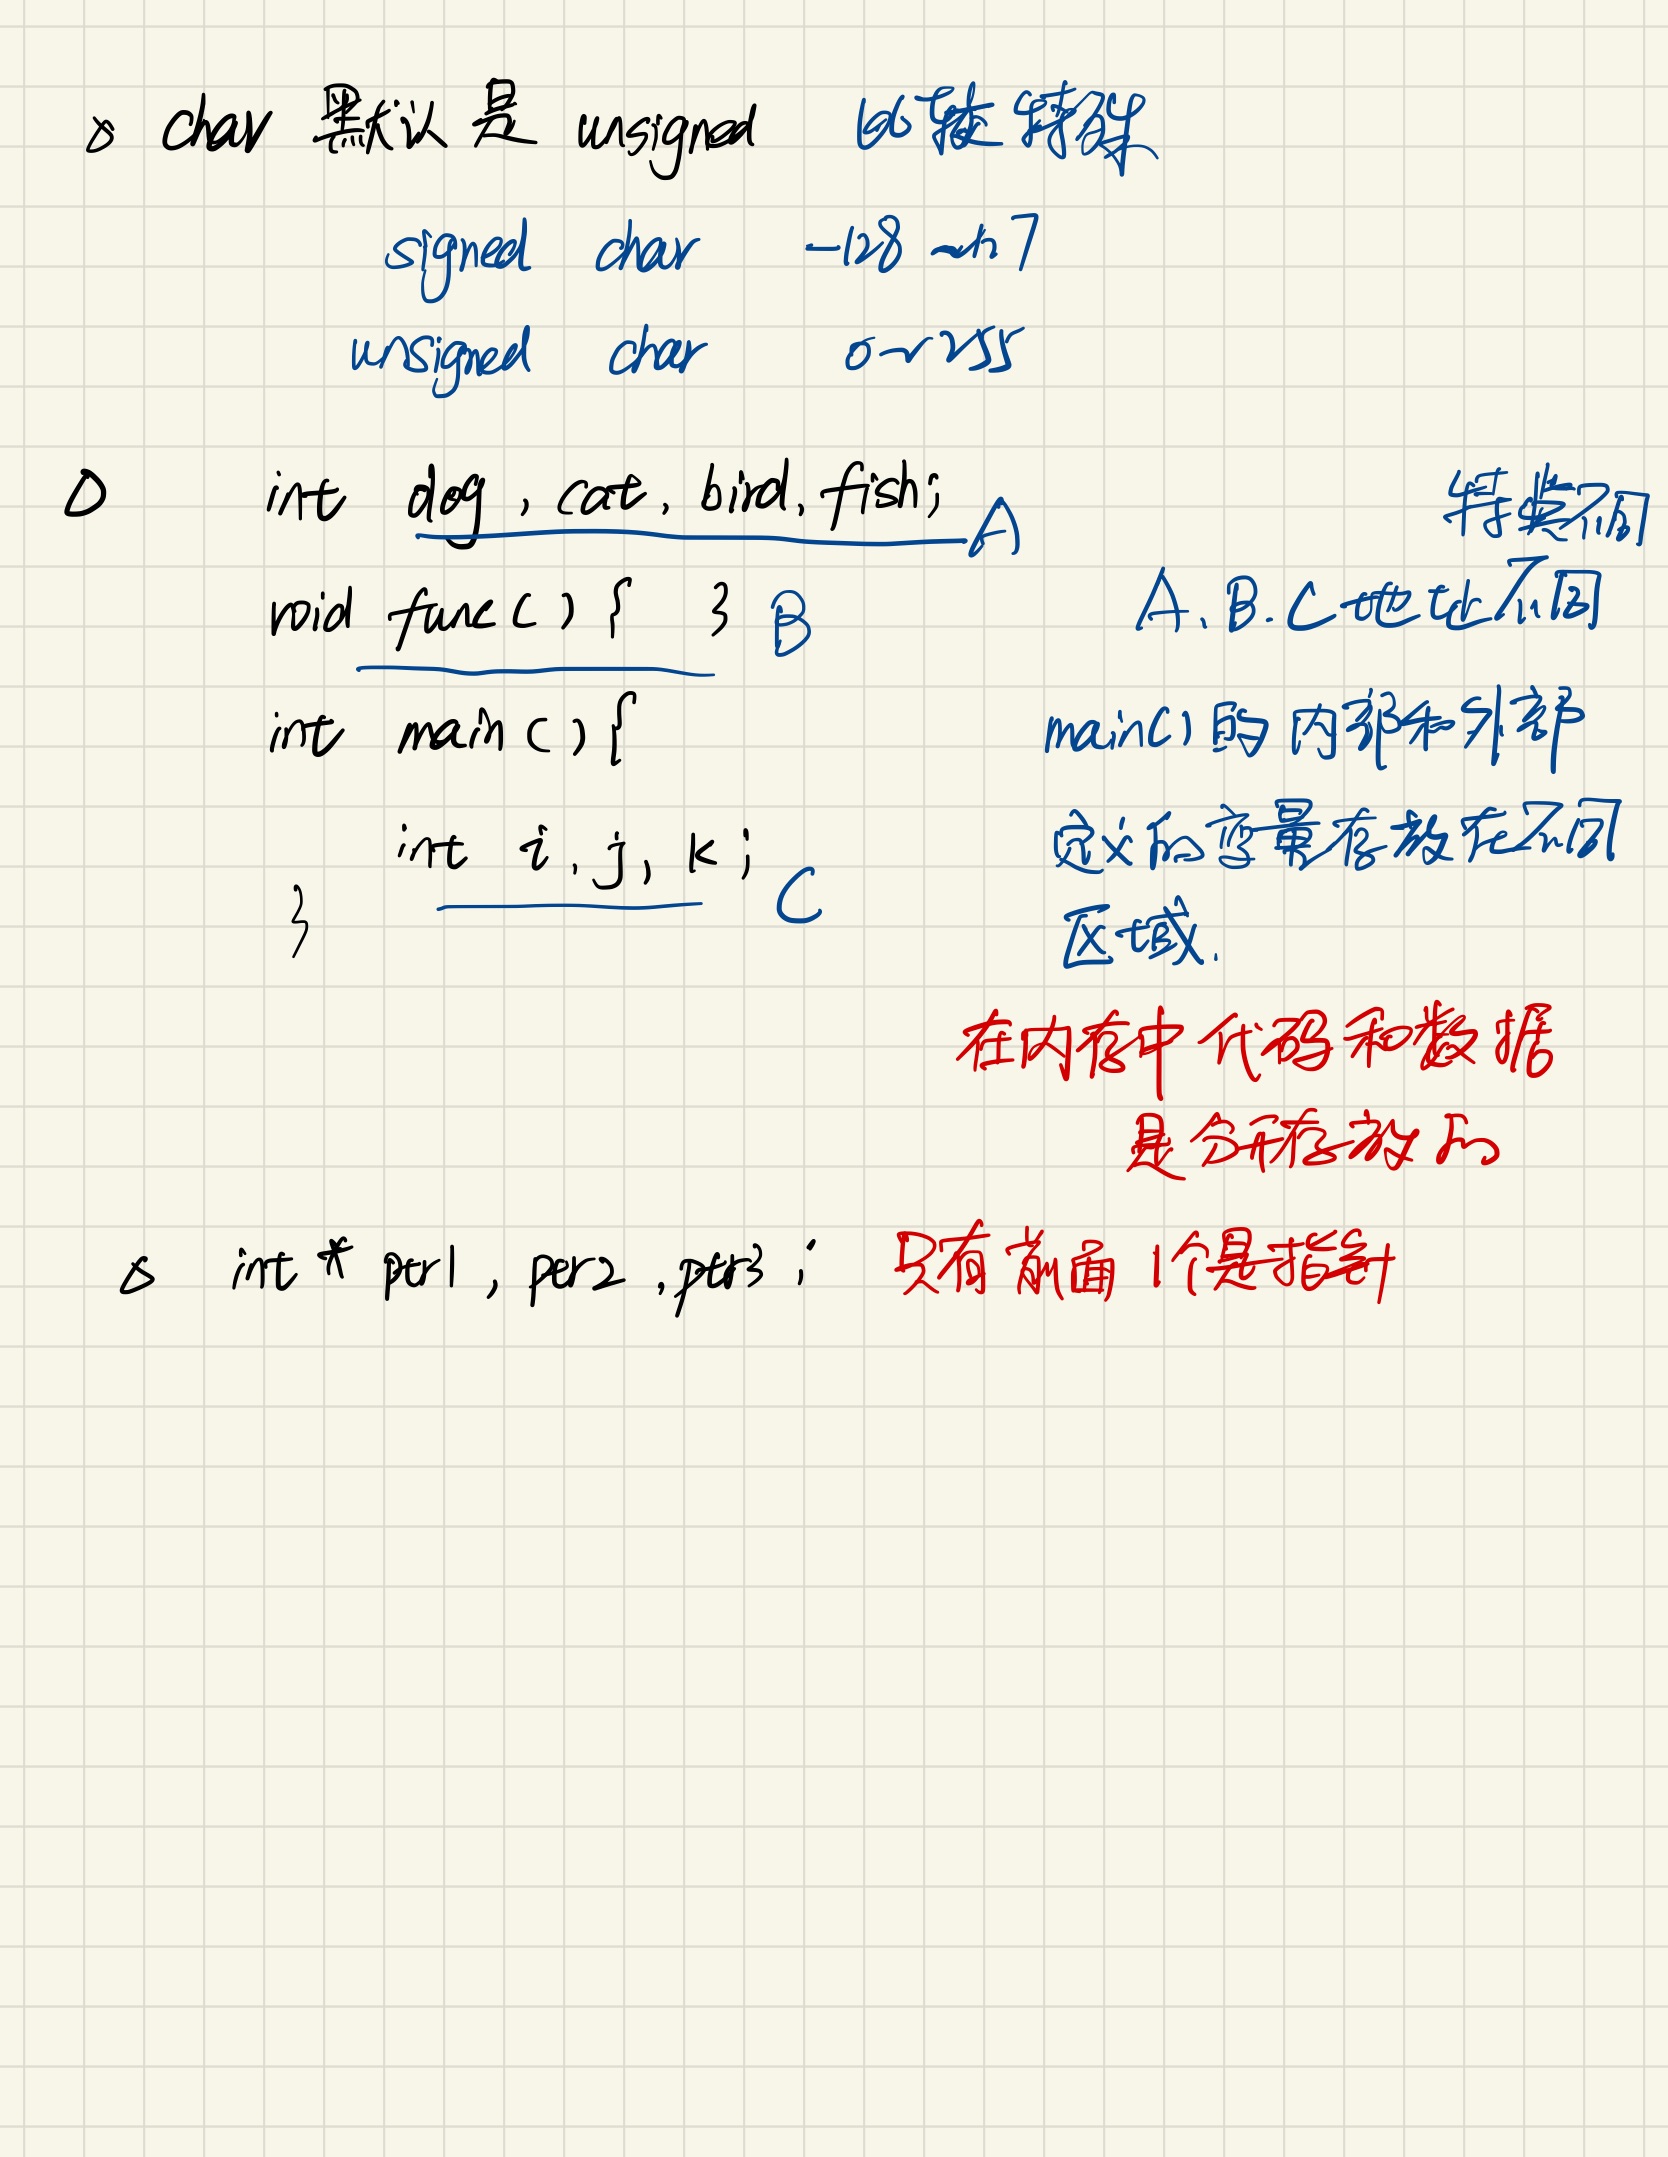 △ char 默认是 unsigned 比较特殊
signed char -128~127
unsigned char 0~255
△ int dog, cat, bird, fish; A
void func() { } B
int main() {
int i, j, k; C
}
特类不同
A. B. C 地址不同
main() 的内部和外部
定义的变量存放在不同
区域.
在内存中代码和数据
是分开存放的
△ int * ptr1, ptr2, ptr3; 只有前面1个是指针